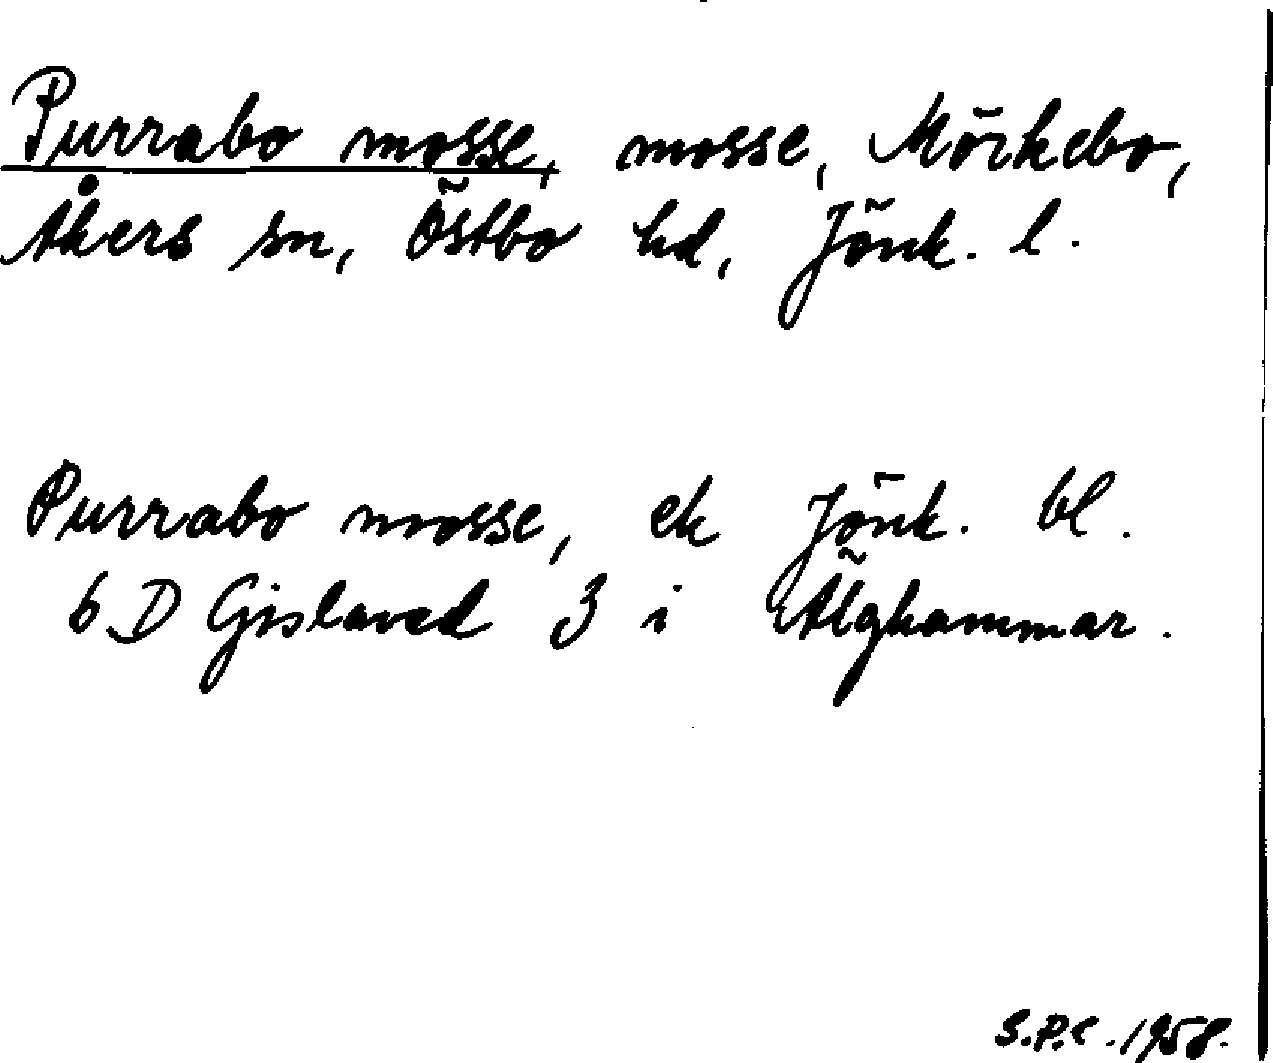 Purrabo mosse, mosse, Mörkebo,
Åkers sn, Östbo hd, Jönk. l.
Purrabo mosse, ek Jönk. bl.
6 D Gislaved 3 i Älghammar.
S.P.C. 1958.